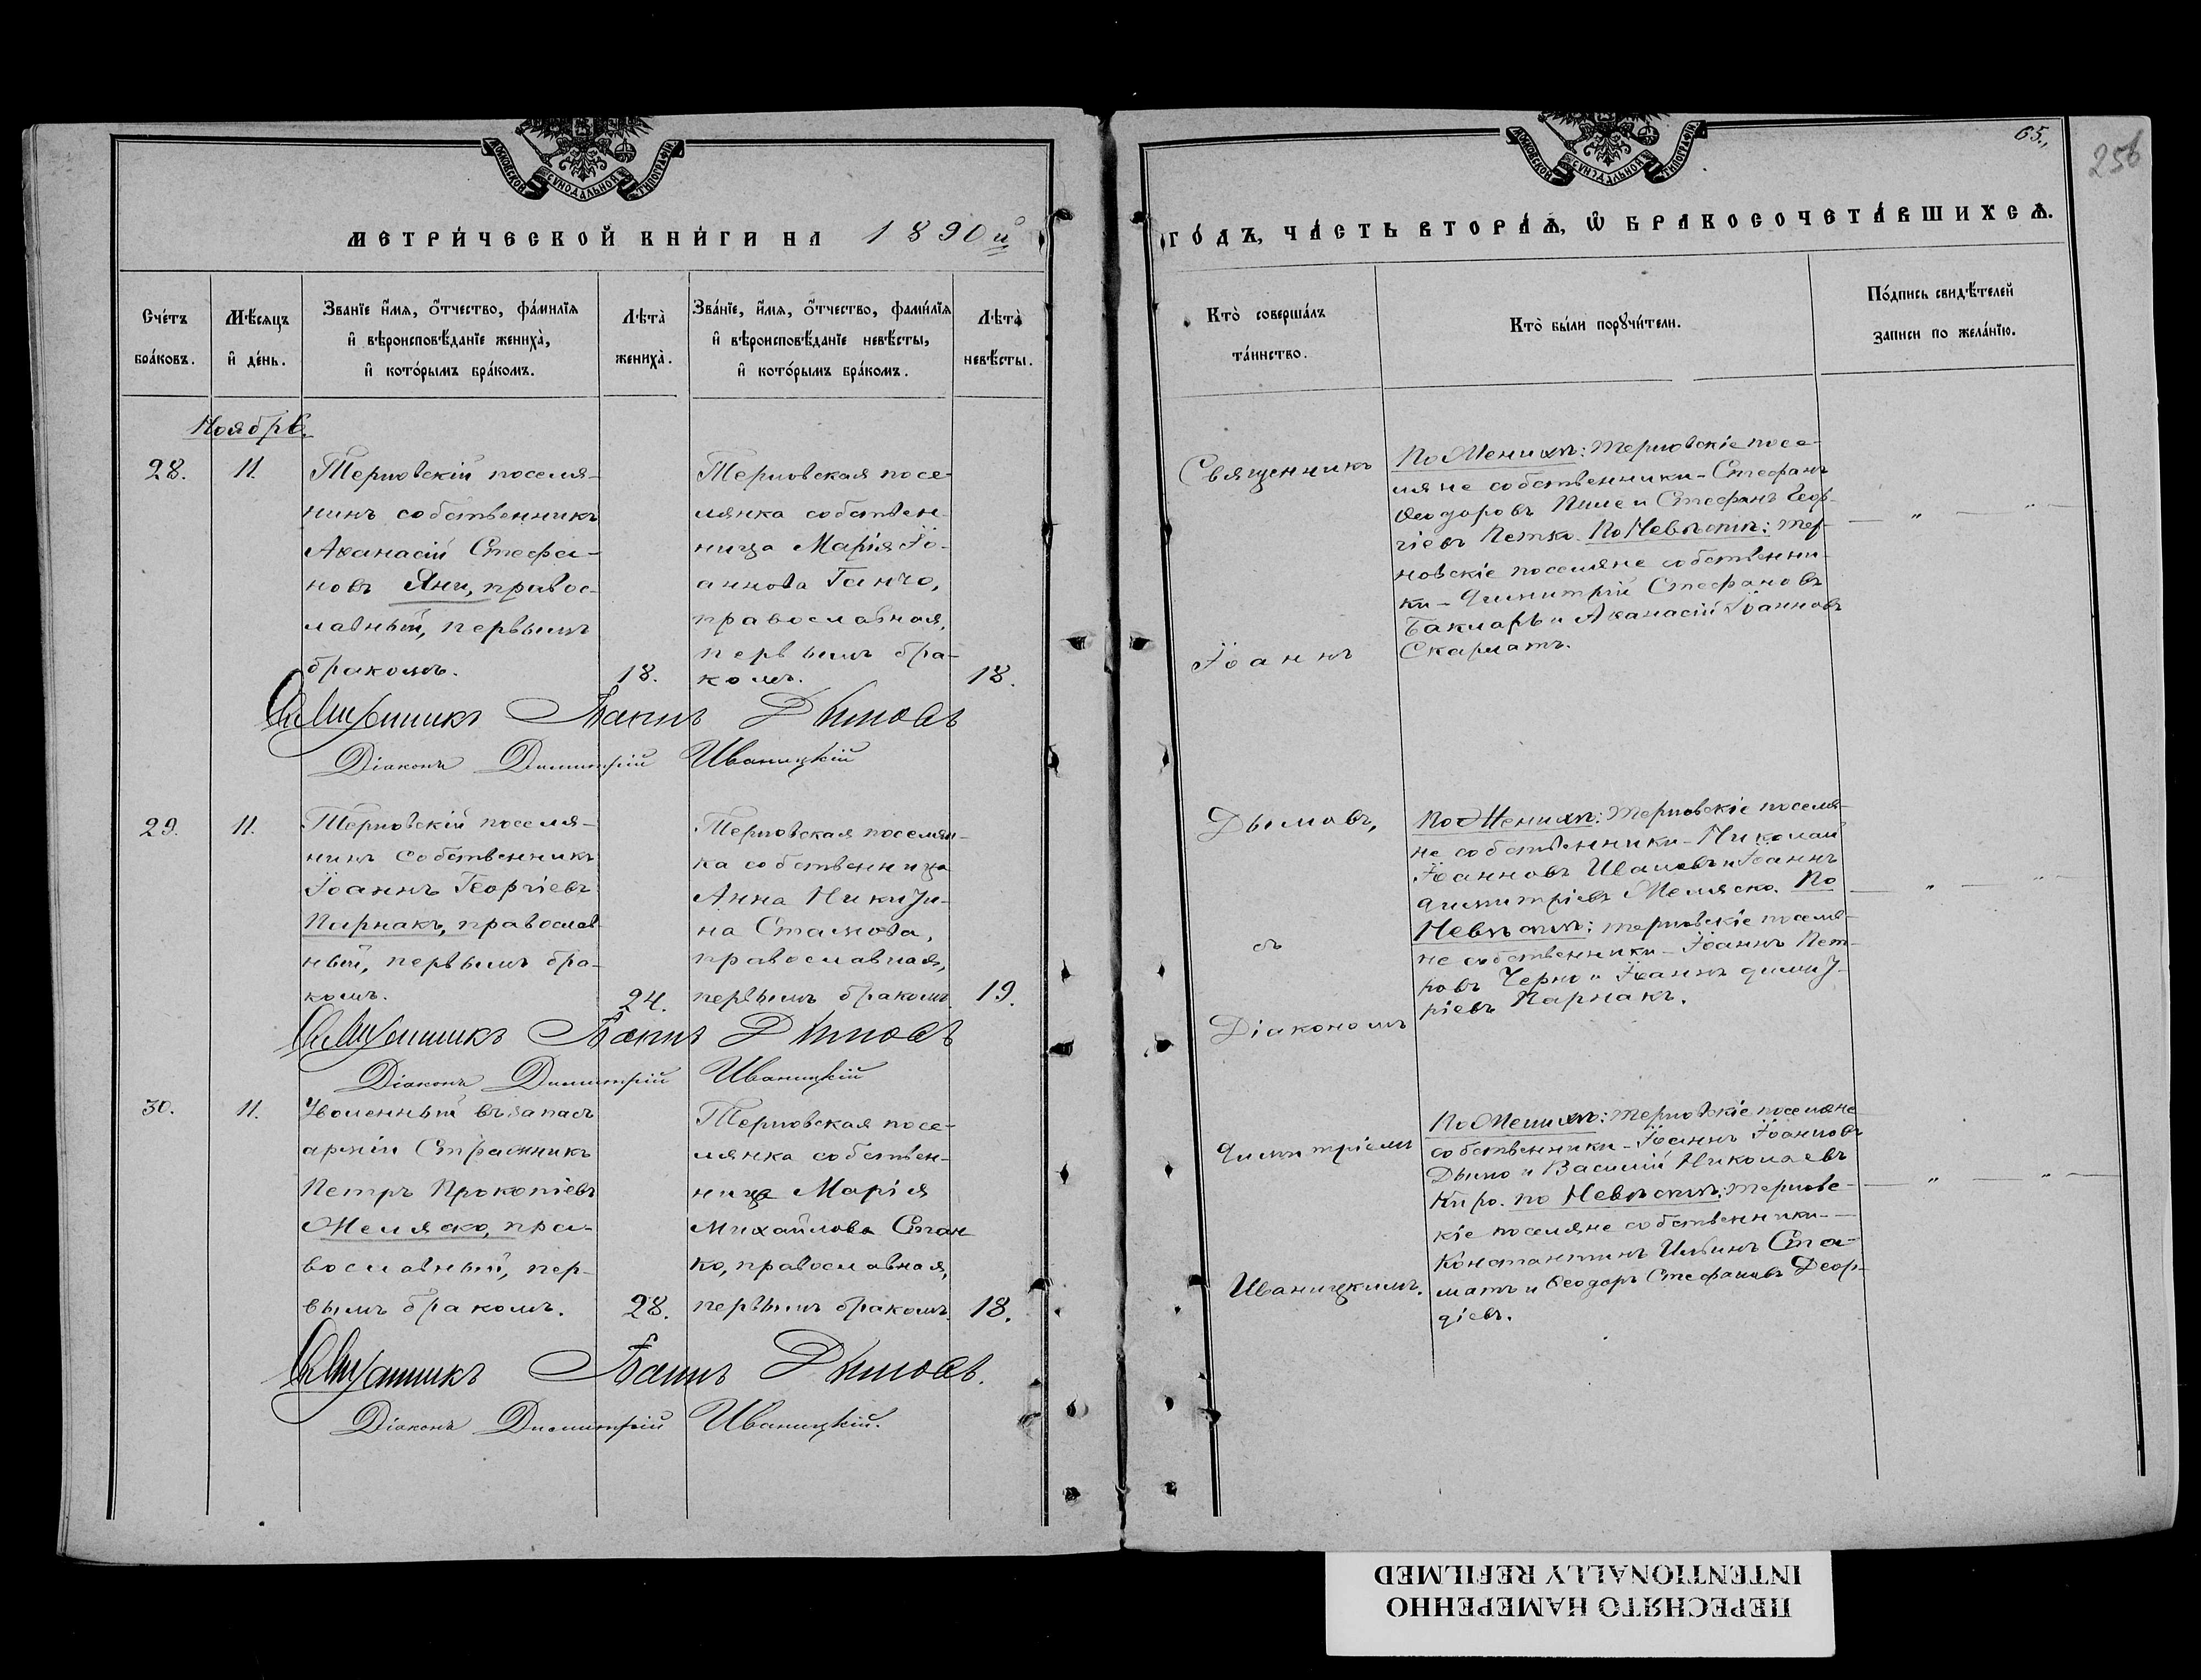 МОСКОВСКОЙ СѴНОДАЛЬНОЙ ТИПОГРАФІИ
МЕТРИ́ЧЕСКОЙ КНИ́ГИ НА 1890й
Сче́тъ бра́ковъ.
Мѣ́сяцъ и҆ де́нь.
Зва́нїе и҆́мѧ, ѻ҆́тчество, фамилїѧ
и҆ вѣроисповѣ́данїе жениха̀,
и҆ кото́рымъ бра́комъ.
Лѣта̀ жениха̀.
Зва́нїе, и҆́мѧ, ѻ҆́тчество, фами́лїѧ
и҆ вѣроисповѣ́данїе невѣ́сты,
и҆ кото́рымъ бра́комъ.
Лѣта̀ невѣ́сты.
Ноябрь.
28.
11.
Терновскій поселя-
нинъ собственникъ
Аѳанасій Стефа-
новъ Яни, правос-
лавный, первымъ
бракомъ.
18.
Терновская посе-
лянка собствен-
ница Марія Іо-
аннова Ганчо,
православная,
первымъ бра-
комъ.
18.
Священникъ Іоаннъ Дымовъ
Діаконъ Димитрій Иваницкій
29.
11.
Терновскій поселя-
нинъ собственникъ
Іоаннъ Георгіевъ
Парнакъ, православ-
ный, первымъ бра-
комъ.
24.
Терновская поселян-
ка собственница
Анна Никити-
на Стамова,
православная,
первымъ бракомъ
19.
Священникъ Іоаннъ Дымовъ
Діаконъ Димитрій Иваницкій
30.
11.
Уволенный въ запасъ
арміи Стражникъ
Петръ Прокопіевъ
Меляско, пра-
вославный, пер-
вымъ бракомъ.
28.
Терновская посе-
лянка собствен-
ница Марія
Михайлова Стан-
ко, православная,
первымъ бракомъ.
18.
Священникъ Іоаннъ Дымовъ.
Діаконъ Димитрій Иваницкій.
65.
256
МОСКОВСКОЙ СѴНОДАЛЬНОЙ ТИПОГРАФІИ
ГО́ДЪ, ЧА́СТЬ ВТОРА́Ѧ, Ѡ҆ БРАКОСОЧЕТА́ВШИХСѦ.
Кто̀ соверша́лъ
та́инство.
Кто̀ бы́ли порꙋчи́тели.
По́дпись свидѣ́телей
записи по жела́нїю.
Священникъ
Іоаннъ
Дымовъ,
съ
Діакономъ
Димитріемъ
Иваницкимъ.
По Женихѣ: терновскіе посе-
ляне собственники - Стефанъ
Ѳеодоровъ Пине и Стефанъ Геор-
гіевъ Петко. По Невѣстѣ: тер-
новскіе поселяне собственни-
ки - Димитрій Стефановъ
Бакларь и Аѳанасій Іоанновъ
Скарлатъ.
— " — " —
По Женихѣ: терновскіе поселя-
не собственники - Николай
Іоанновъ Ивановъ и Іоаннъ
Димитріевъ Меляско. По
Невѣстѣ: терновскіе поселя-
не собственники - Іоаннъ Пет-
ровъ Черно и Іоаннъ Димит-
ріевъ Парнакъ.
— " — " —
По Женихѣ: терновскіе поселяне
собственники - Іоаннъ Іоанновъ
Дымо и Василій Николаевъ
Киро. по Невѣстѣ: терновс-
кіе поселяне собственники -
Константинъ Ильинъ Ста-
матъ и Ѳеодоръ Стефановъ Деор-
діевъ.
— " — " —
ПЕРЕСНЯТО НАМЕРЕННО
INTENTIONALLY REFILMED